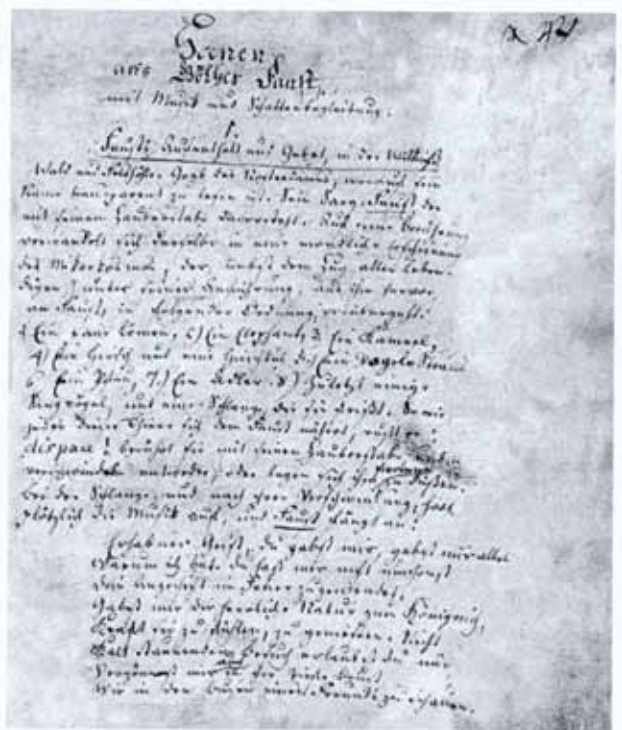 Scenen
aus Göthes Faust,
mit Musik und Schattenbegleitung.
I
Fausts Aufenthalt und Gebet, in der Wildniß
Wald und Felshöhle. Faust der
mit seinem Zauberstabe Auf eine Berührung
verwandelt sich derselbe in eine Erscheinung
des der, nebst dem Zug aller Leben-
digen unter seiner Anführung, aus ihr hervor
an Faust, in folgender Ordnung, vorübergeht.
1 Ein paar Löwen, 2) Ein Elephant, 3 Ein Kameel,
4) Ein Hirsch und eine Ein Vogel Strauß
6 Ein Pfau, 7.) Ein Adler. 8) Zuletzt einige
Singvögel, und eine Schlange, die sie So wie
jedes dieser Thiere sich dem Faust nähert, ruft er:
dispare! berührt sie mit seinem Zauberstabe und sie
verschwinden entweder, oder legen sich ihm zu Füßen.
Bei der Schlange, und nach ihrer Verschwindung, hört
plötzlich die Musik auf, und Faust fängt an:
Erhabner Geist, du gabst mir, gabst mir alles
Warum ich bat. Du hast mir nicht umsonst
Dein Angesicht im Feuer zugewendet.
Gabst mir die herrliche Natur zum Königreich,
Kraft sie zu fühlen, zu genießen. Nicht
Kalt staunenden Besuch erlaubst du nur
Vergönnest mir in ihr tiefe Brust
Wie in den Busen eines Freunds zu schauen.